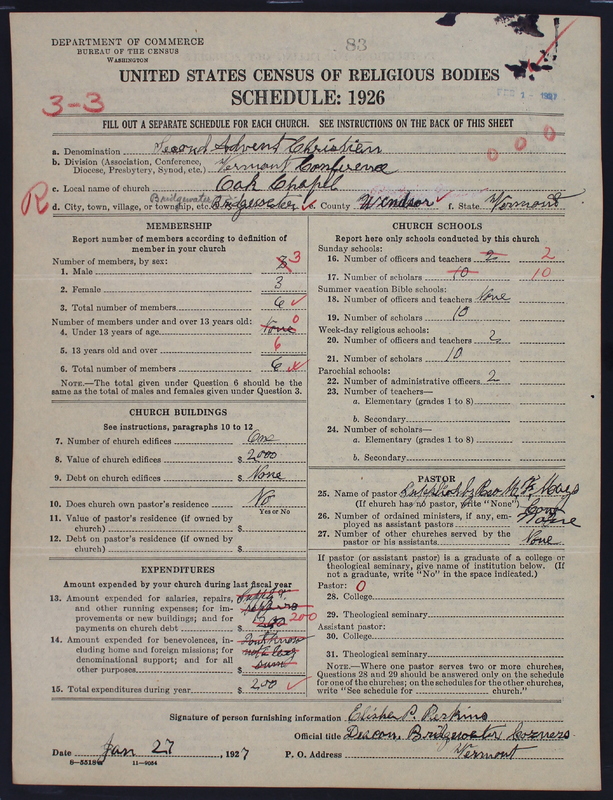 DEPARTMENT OF COMMERCE
BUREAU OF THE CENSUS
WASHINGTON
83
UNITED STATES CENSUS OF RELIGIOUS BODIES
SCHEDULE: 1926
3-3
FEB 1 - 1927
FILL OUT A SEPARATE SCHEDULE FOR EACH CHURCH. SEE INSTRUCTIONS ON THE BACK OF THIS SHEET
a. Denomination Second Advent Christian
b. Division (Association, Conference, Diocese, Presbytery, Synod, etc.) Vermont Conference
0 0 0
c. Local name of church Oak Chapel
R
d. City, town, village, or township, etc. Bridgewater Bridgewater e. County Windsor f. State Vermont
MEMBERSHIP
Report number of members according to definition of
member in your church
Number of members, by sex:
1. Male 3 3
2. Female 3
3. Total number of members 6
Number of members under and over 13 years old:
4. Under 13 years of age None 0
5. 13 years old and over 6
6. Total number of members 6
NOTE.—The total given under Question 6 should be the
same as the total of males and females given under Question 3.
CHURCH BUILDINGS
See instructions, paragraphs 10 to 12
7. Number of church edifices One
8. Value of church edifices $ 2000
9. Debt on church edifices $ None
10. Does church own pastor's residence No
Yes or No
11. Value of pastor's residence (if owned by
church) $
12. Debt on pastor's residence (if owned by
church) $
EXPENDITURES
Amount expended by your church during last fiscal year
13. Amount expended for salaries, repairs,
and other running expenses; for im-
provements or new buildings; and for
payments on church debt $ 200 200
14. Amount expended for benevolences, in-
cluding home and foreign missions; for
denominational support; and for all
other purposes $ Dont know not a large sum
15. Total expenditures during year $ 200
CHURCH SCHOOLS
Report here only schools conducted by this church
Sunday schools:
16. Number of officers and teachers 2 2
17. Number of scholars 10 10
Summer vacation Bible schools:
18. Number of officers and teachers None
19. Number of scholars 10
Week-day religious schools:
20. Number of officers and teachers 2
21. Number of scholars 10
Parochial schools:
22. Number of administrative officers 2
23. Number of teachers—
a. Elementary (grades 1 to 8)
b. Secondary
24. Number of scholars—
a. Elementary (grades 1 to 8)
b. Secondary
PASTOR
25. Name of pastor
(If church has no pastor, write "None")
26. Number of ordained ministers, if any, em-
ployed as assistant pastors None
27. Number of other churches served by the
pastor or his assistants None
If pastor (or assistant pastor) is a graduate of a college or
theological seminary, give name of institution below. (If
not a graduate, write "No" in the space indicated.)
Pastor: 0
28. College
29. Theological seminary
Assistant pastor:
30. College
31. Theological seminary
NOTE.—Where one pastor serves two or more churches,
Questions 28 and 29 should be answered only on the schedule
for one of the churches; on the schedules for the other churches,
write "See schedule for church."
Signature of person furnishing information Elisha P. Perkins
Official title Deacon, Bridgewater Corners
Date Jan 27, 1927 P. O. Address Vermont
8-5518
11-9054